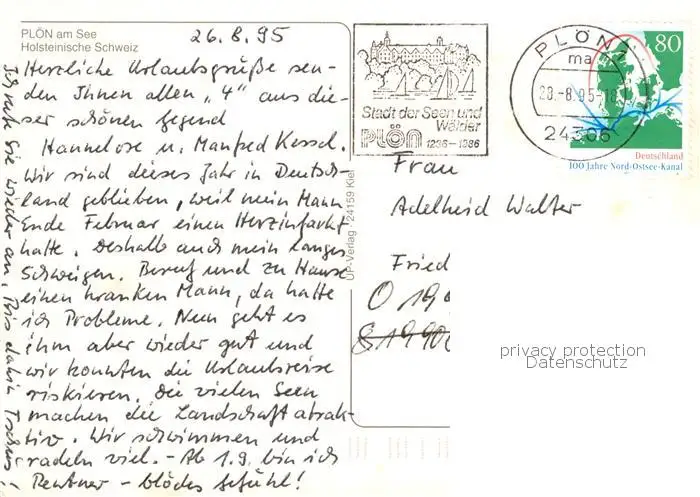 PLÖN am See
Holsteinische Schweiz
26.8.95
Herzliche Urlaubsgrüße sen-
den Ihnen allen „4" aus die-
ser schönen Gegend
Hannelore u. Manfred Kessel.
Wir sind dieses Jahr in Deutsch-
land geblieben, weil mein Mann
Ende Februar einen Herzinfarkt
hatte. Deshalb auch mein langes
Schweigen. Beruf und zu Hause
einen kranken Mann, da hatte
ich Probleme. Nun geht es
ihm aber wieder gut und
wir konnten die Urlaubsreise
riskieren. Die vielen Seen
machen die Landschaft attrak-
tiv. Wir schwimmen und
radeln viel. - Ab 1.9. bin ich
Rentner - blödes Gefühl!
Ich rufe Sie wieder an, Bis dahin Tschüs!
UP-Verlag · 24159 Kiel
Stadt der Seen und
Wälder
PLÖN 1236-1986
PLÖN 1
ma
28.-8.95-18
24306
80
Deutschland
100 Jahre Nord-Ostsee-Kanal
Frau
Adelheid Walter
Fried
O 19
privacy protection
Datenschutz